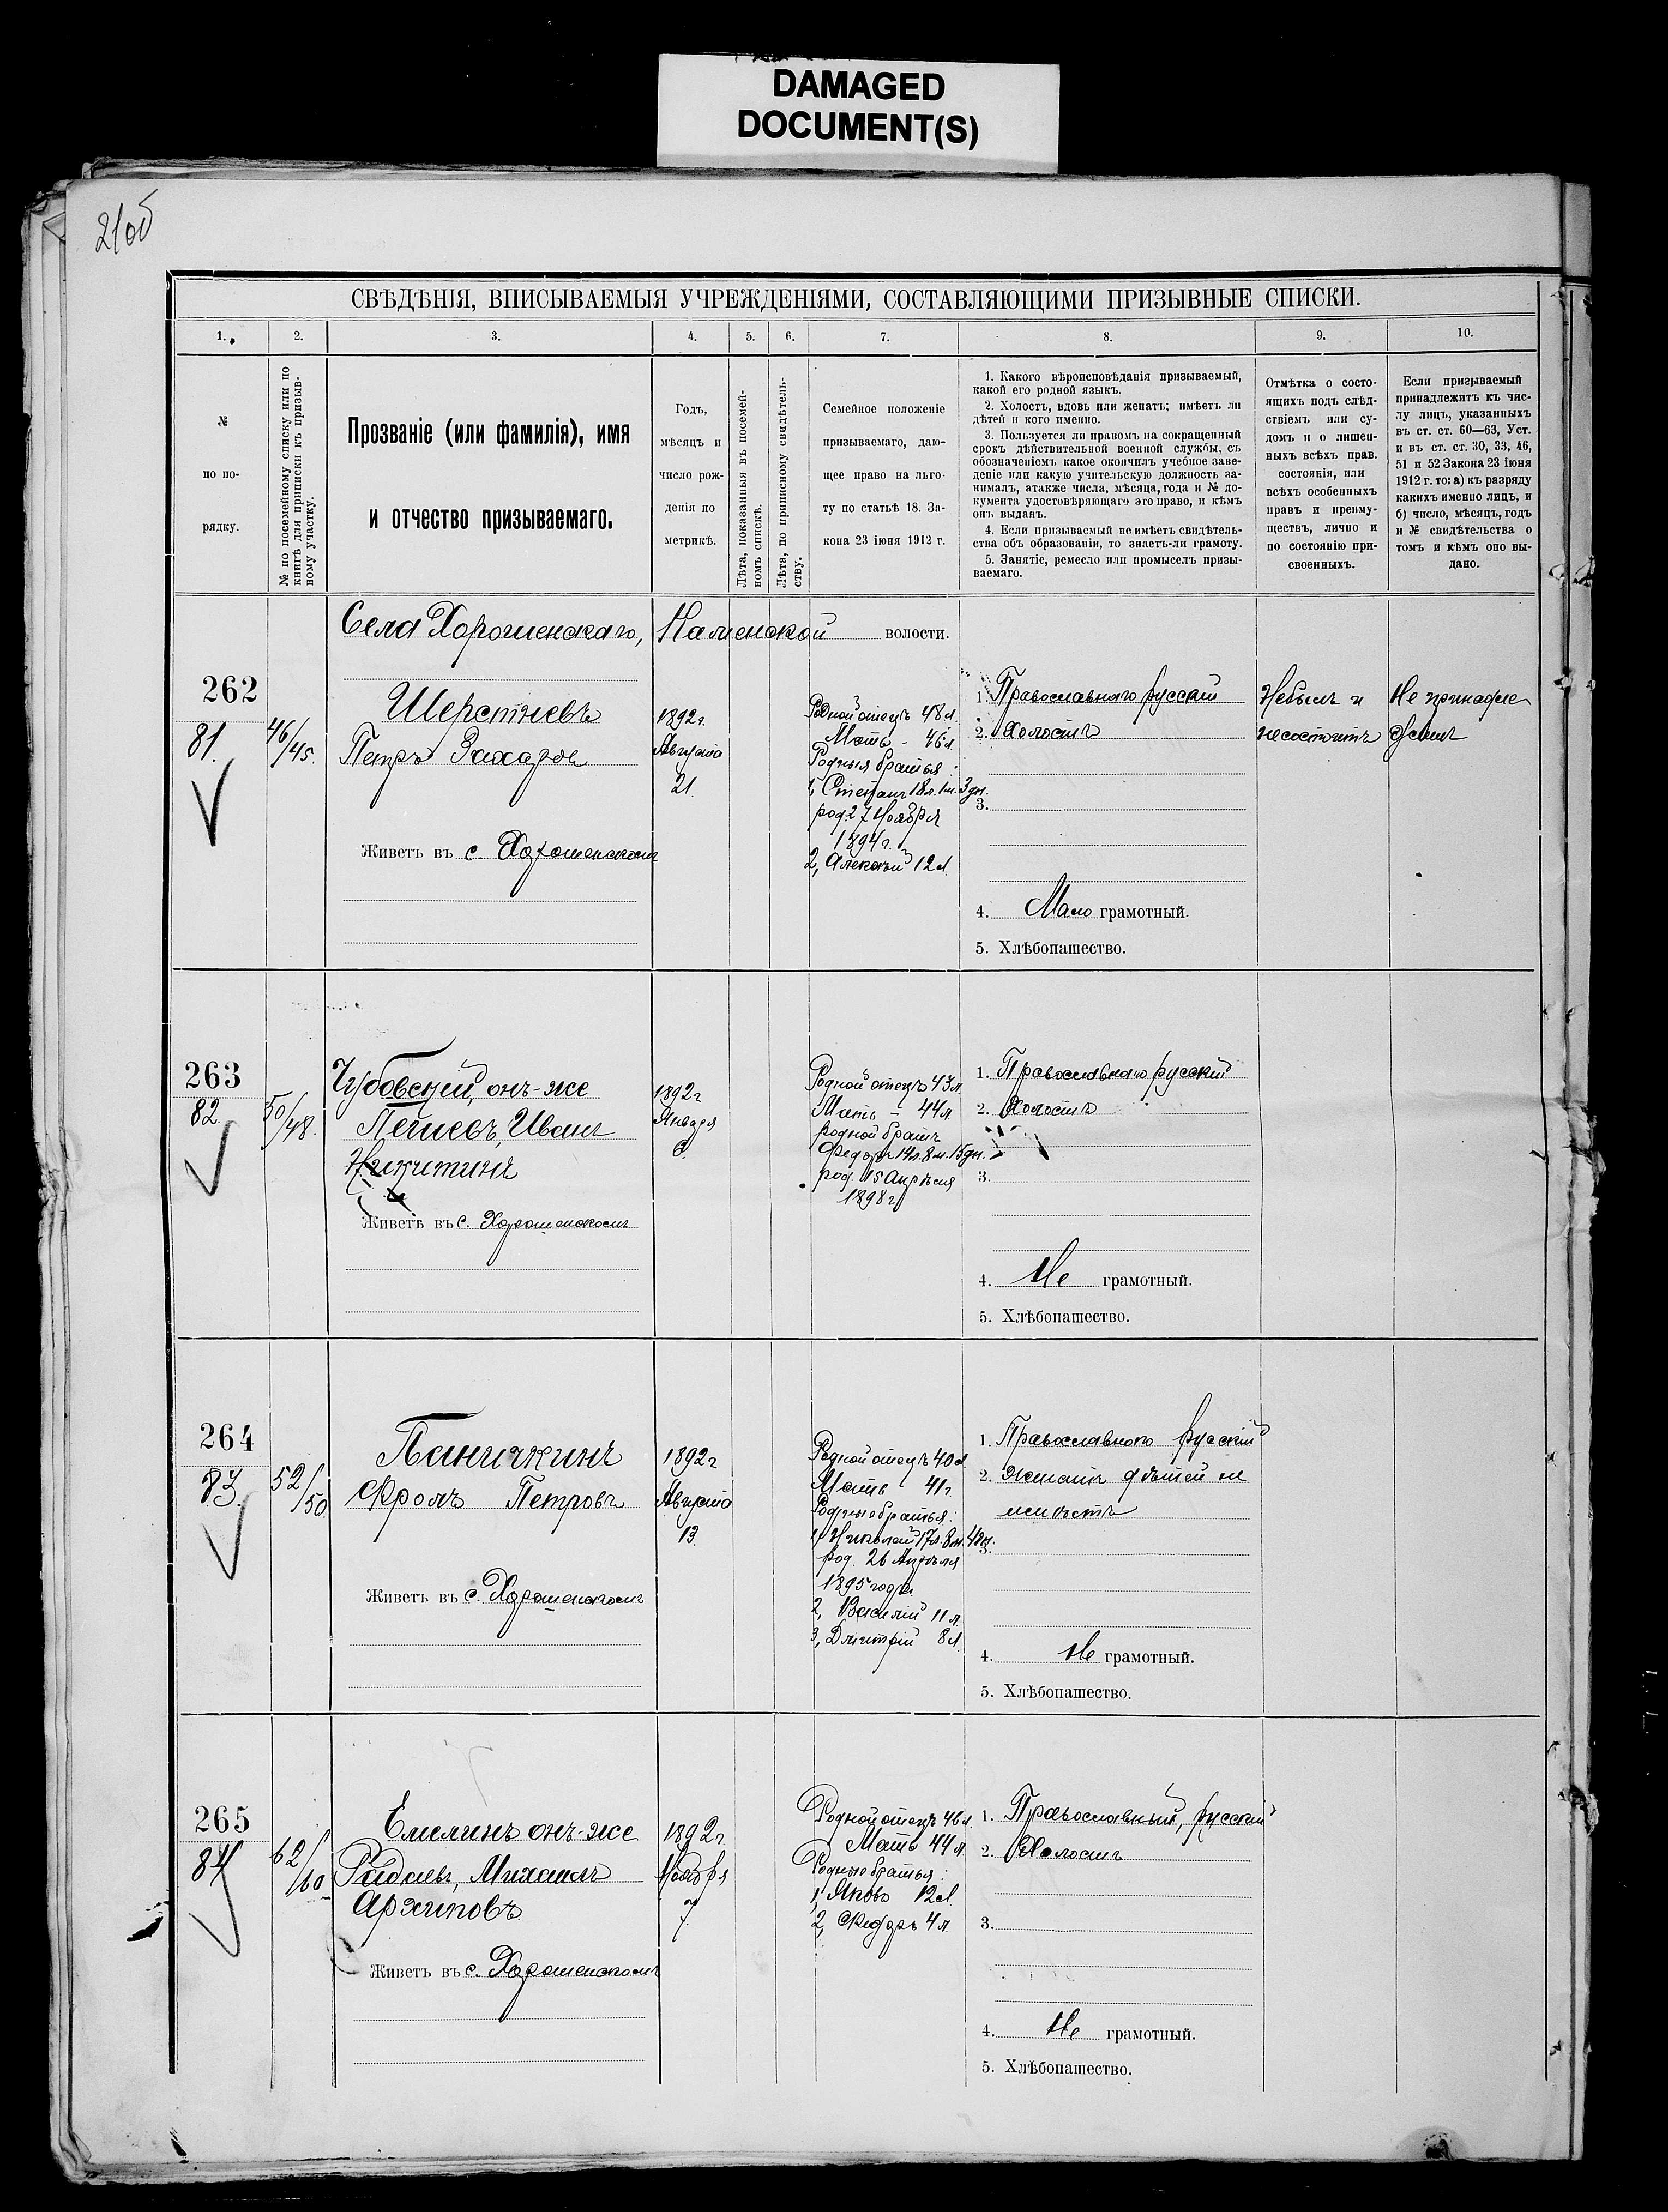 DAMAGED
DOCUMENT(S)
21об
СВѢДѢНІЯ, ВПИСЫВАЕМЫЯ УЧРЕЖДЕНІЯМИ, СОСТАВЛЯЮЩИМИ ПРИЗЫВНЫЕ СПИСКИ.
1. 2. 3. 4. 5. 6. 7. 8. 9. 10.
№
по по-
рядку.
№ по посемейному списку или по
книгѣ для приписки къ призыв-
ному участку.
Прозваніе (или фамилія), имя
и отчество призываемаго.
Годъ,
мѣсяцъ и
число рож-
денія по
метрикѣ.
Лѣта, показанныя въ посемей-
номъ спискѣ.
Лѣта, по приписному свидѣтель-
ству.
Семейное положеніе
призываемаго, даю-
щее право на льго-
ту по статьѣ 18. За-
кона 23 іюня 1912 г.
1. Какого вѣроисповѣданія призываемый,
какой его родной языкъ.
2. Холостъ, вдовъ или женатъ; имѣетъ ли
дѣтей и кого именно.
3. Пользуется ли правомъ на сокращенный
срокъ дѣйствительной военной службы, съ
обозначеніемъ какое окончилъ учебное заве-
деніе или какую учительскую должность за-
нималъ, атакже числа, мѣсяца, года и № до-
кумента удостовѣряющаго это право, и кѣмъ
онъ выданъ.
4. Если призываемый не имѣетъ свидѣтель-
ства объ образованіи, то знаетъ-ли грамоту.
5. Занятіе, ремесло или промыселъ призы-
ваемаго.
Отмѣтка о состо-
ящихъ подъ слѣд-
ствіемъ или су-
домъ и о лишен-
ныхъ всѣхъ прав.
состоянія, или
всѣхъ особенныхъ
правъ и преиму-
ществъ, лично и
по состоянію при-
своенныхъ.
Если призываемый
принадлежитъ къ чис-
лу лицъ, указанныхъ
въ ст. ст. 60—63, Уст.
и въ ст. ст. 30, 33, 46,
51 и 52 Закона 23 іюня
1912 г. то: а) къ разряду
какихъ именно лицъ, и
б) число, мѣсяцъ, годъ
и № свидѣтельства о
томъ и кѣмъ оно вы-
дано.
Села Хорошенскаго, Каменской волости.
262
81.
46/45.
Шерстневъ
Петръ Захаров
Живетъ въ с. Хорошенскомъ
1892г.
Августа
21.
Родной отецъ 48л.
Мать - 46л
Родныя братья:
1, Степанъ 18л. 1м. 3дн.
род. 27 Ноября
1894г.
2, Алексѣй 12л.
1. Православнаго русскій
2. Холостъ
3.
4. Мало грамотный.
5. Хлѣбопашество.
Небылъ и
несостоитъ
Не принадле
житъ
263
82
50/48.
Чубовский, онъ-же
Иванъ
Никитинъ
Живетъ въ с. Хорошенскомъ
1892г
Января
6.
Родной отецъ 43л
Мать - 44л
родной братъ
Федоръ 14л. 8м. 15дн.
род. 15 Апрѣля
1898г
1. Православнаго русский
2. Холостъ
3.
4. Не грамотный.
5. Хлѣбопашество.
264
83.
52/50.
Паничкинъ
Фролъ Петровъ
Живетъ въ с. Хорошенскомъ
1892г
Августа
13.
Родной отецъ 40л
Мать 41г.
Родные братья:
1, Николай 17л. 8м. 4дн.
род. 26 Апрѣля
1895 года
2, Василій 11л.
3, Дмитрій 8л.
1. Православного русскій
2. Женатъ дѣтей не
имѣетъ
3.
4. Не грамотный.
5. Хлѣбопашество.
265
84
62/60
Емелинъ онъ-же
Михаилъ
Архиповъ.
Живетъ въ с. Хорошенскомъ
1892г.
Ноября
7.
Родной отецъ 46л.
Мать 44л.
Родные братья:
1, Яковъ 12л.
2, Федоръ 4л.
1. Православный, русский
2. Холостъ
3.
4. Не грамотный.
5. Хлѣбопашество.